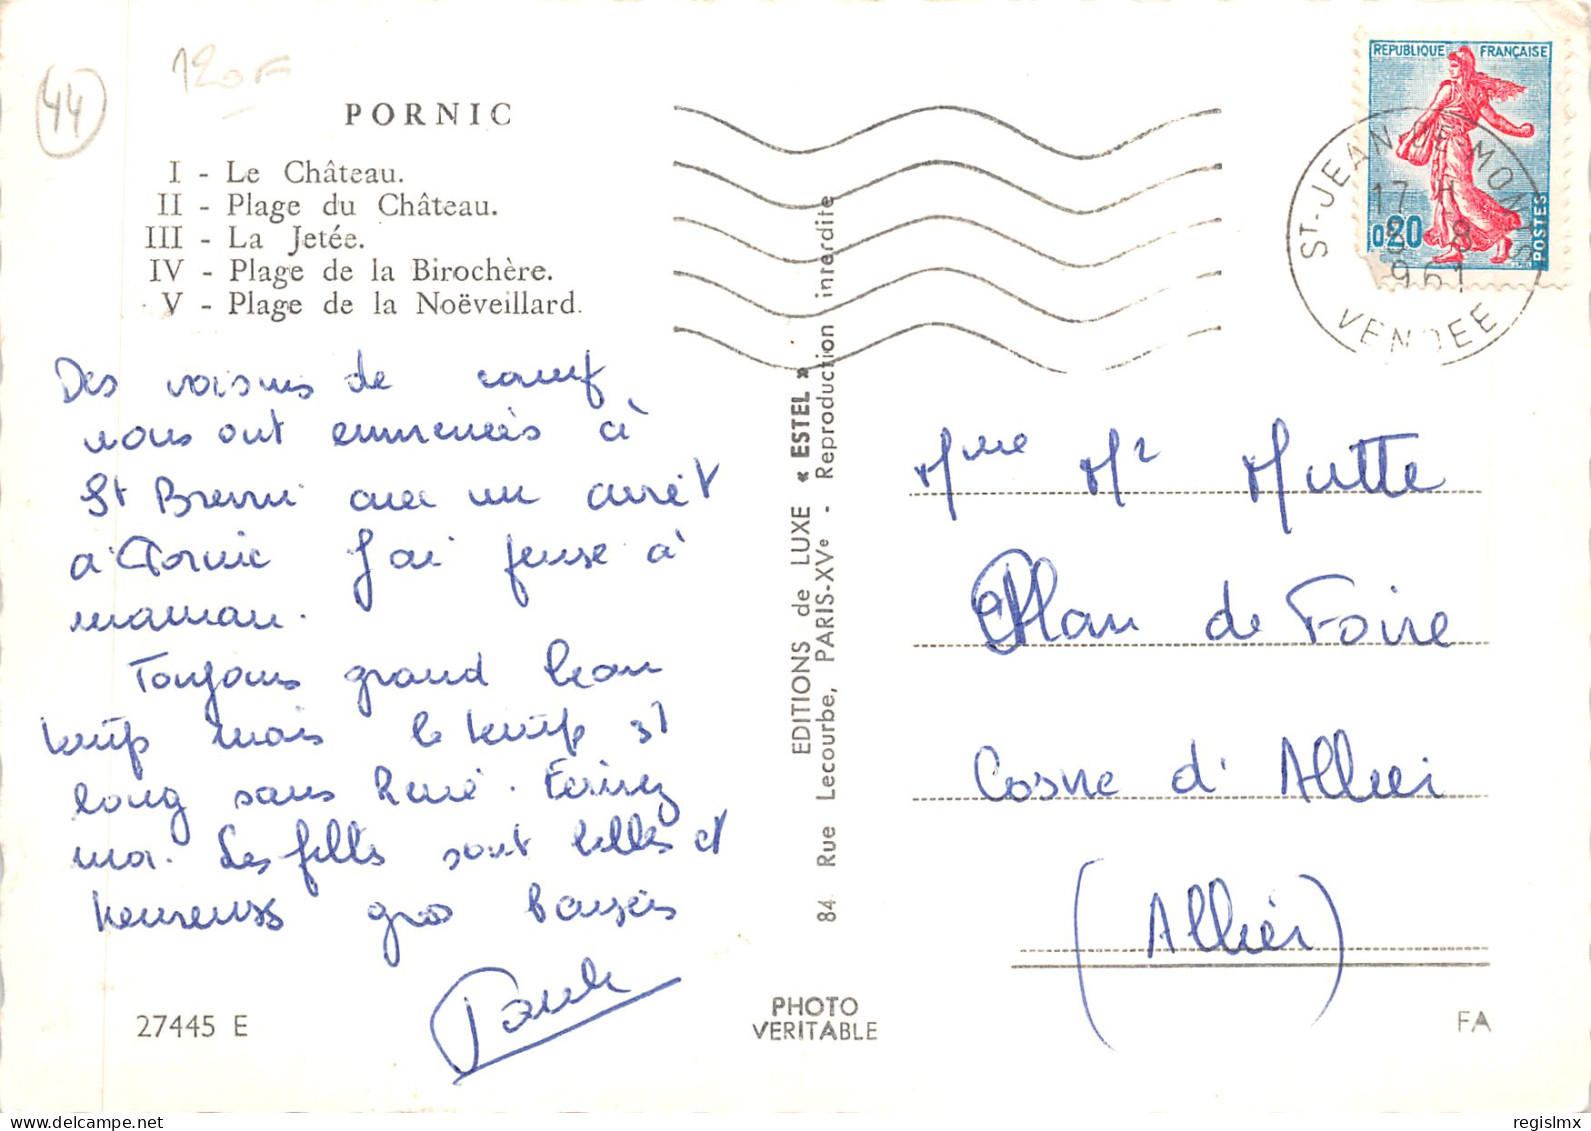 44
120F
PORNIC
I - Le Château.
II - Plage du Château.
III - La Jetée.
IV - Plage de la Birochère.
V - Plage de la Noëveillard.
Des voisins de camp
nous ont emmenés à
St Brevin avec un arrêt
à Pornic J'ai pensé à
maman.
Toujours grand beau
temps mais le temps est
long sans René. Ecrivez
moi. Les filles sont belles et
heureuses gros baisers
Paule
27445 E
EDITIONS de LUXE « ESTEL » - Reproduction interdite
84 Rue Lecourbe, PARIS-XVe
PHOTO
VERITABLE
REPUBLIQUE FRANÇAISE
0,20
POSTES
ST-JEAN-DE-MONTS
17 H
8
1961
VENDEE
Mme Mr Mutte
Plan de Foire
Cosne d'Allier
(Allier)
FA
regislmx